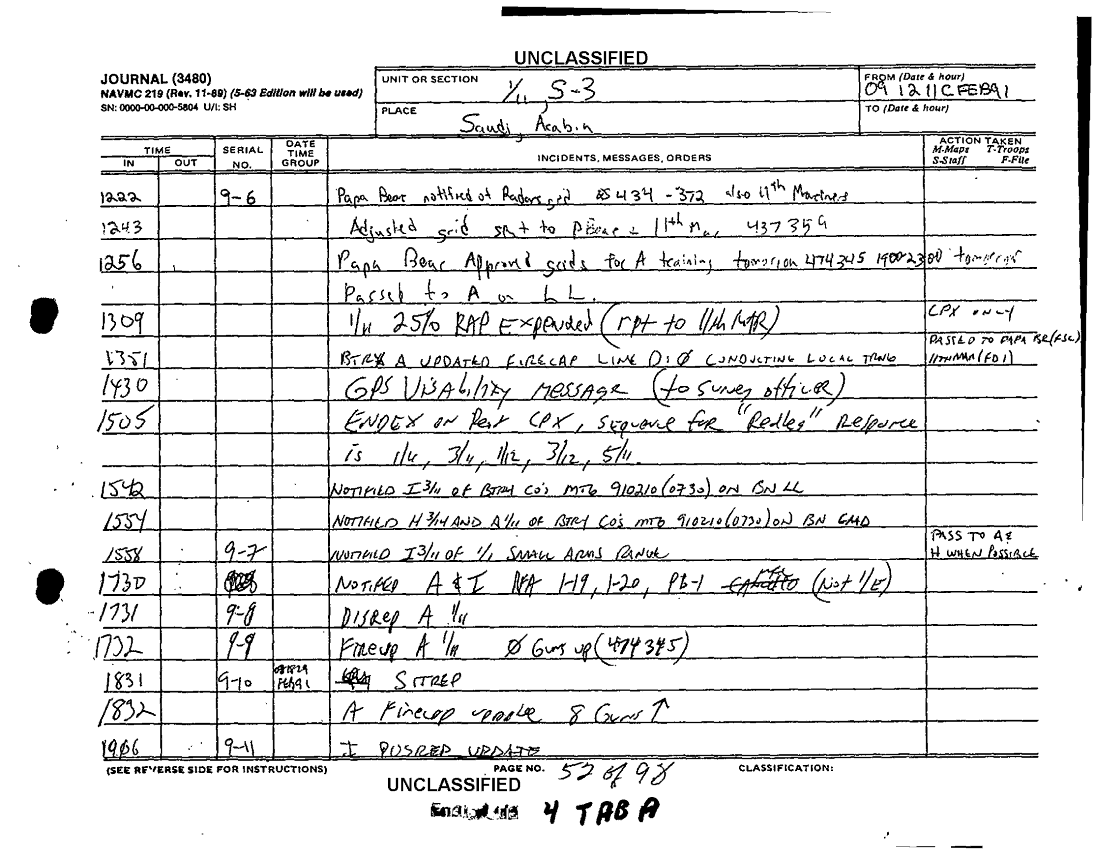 UNCLASSIFIED
JOURNAL (3480)
NAVMC 219 (Rev. 11-89) (5-63 Edition will be used)
SN: 0000-00-000-5804 U/I: SH
UNIT OR SECTION
1/11, S-3
FROM (Date & hour)
09 1211C FEB91
PLACE
Saudi Arabia
TO (Date & hour)
TIME
IN OUT
SERIAL NO.
DATE TIME GROUP
INCIDENTS, MESSAGES, ORDERS
ACTION TAKEN
M-Maps T-Troops
S-Staff F-File
1222 9-6 Papa Bear notified of Radars grid 434-372 also 11th Marines
1243 Adjusted grid sent to 11th Mar 437359
1256 Papa Bear Approved grids for A training tomorrow 474345 1900-2300 tomorrow
Passed to A on LL.
1309 1/11 25% RAP Expended (rpt to 11th MAR) CPX ONLY
1351 BTRY A UPDATED FIRECAP LINE D: Ø CONDUCTING LOCAL TRNG PASSED TO PAPA BR(FSC) 11THMAR(FDI)
1430 GPS USABILITY MESSAGE (to Survey officer)
1505 ENDEX on Regt CPX, sequence for "Redleg" Response
is 1/11, 3/11, 1/12, 3/12, 5/11.
1542 NOTIFIED I 3/11 OF BTRY CO'S MTG 910210(0730) ON BN LL
1554 NOTIFIED H 3/14 AND A 1/11 OF BTRY CO'S MTG 910210(0730) ON BN CMD
1558 9-7 NOTIFIED I 3/11 OF 1/1 SMALL ARMS RANGE PASS TO A & H WHEN POSSIBLE
1730 NOTIFIED A & I RFA 1-19, 1-20, PB-1 (Not 1/E)
1731 9-8 DISREP A 1/11
1732 9-9 Firecap A 1/11 Ø Guns up (474345)
1831 9-10 FEB91 SITREP
1832 A Firecap update 8 Guns ↑
1906 9-11 I POSREP UPDATE
(SEE REVERSE SIDE FOR INSTRUCTIONS)
PAGE NO. 52 of 98
CLASSIFICATION:
UNCLASSIFIED
4 TAB A